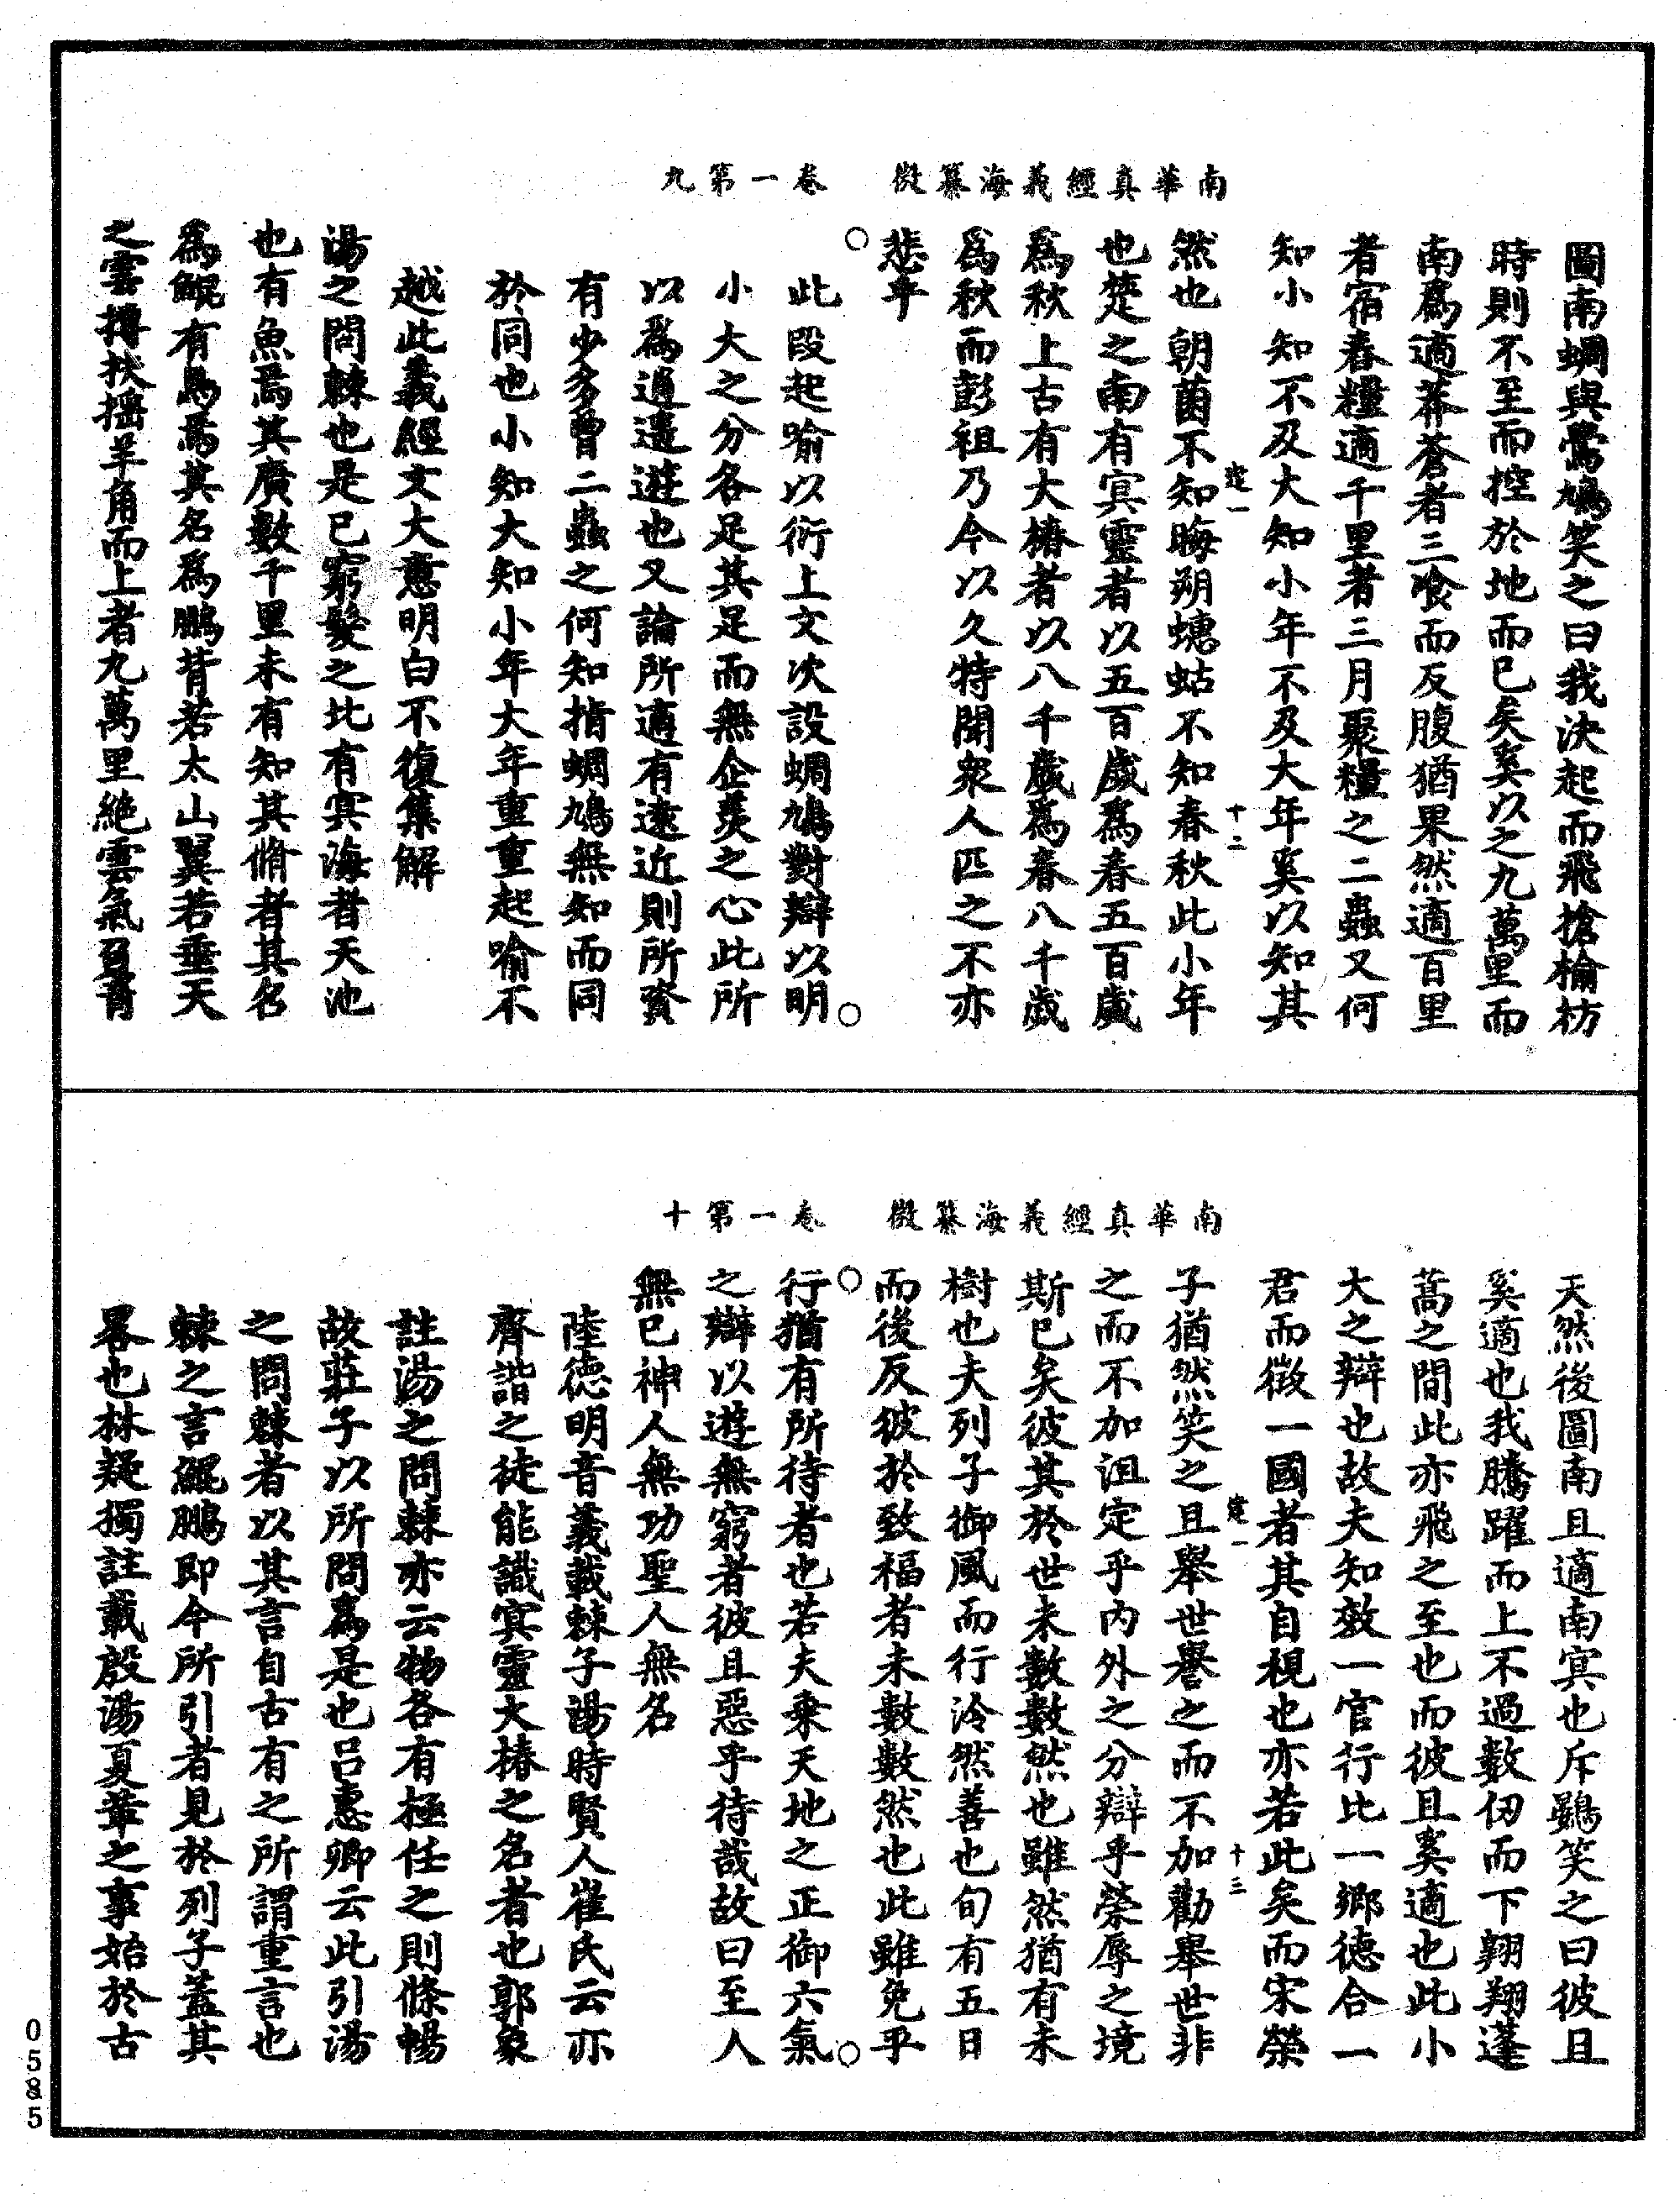 南華真經義海纂微　卷一第九
圖南蜩與鷽鳩笑之曰我決起而飛搶榆枋
時則不至而控於地而已矣奚以之九萬里而
南爲適莽蒼者三飡而反腹猶果然適百里
者宿舂糧適千里者三月聚糧之二蟲又何
知小知不及大知小年不及大年奚以知其
建一　十二
然也朝菌不知晦朔蟪蛄不知春秋此小年
也楚之南有冥靈者以五百歲爲春五百歲
爲秋上古有大椿者以八千歲爲春八千歲
爲秋而彭祖乃今以久特聞衆人匹之不亦
悲乎
此段起喻以衍上文次設蜩鳩對辯以明
小大之分各足其足而無企羨之心此所
以爲逍遥遊也又論所適有遠近則所資
有少多曾二蟲之何知指蜩鳩無知而同
於同也小知大知小年大年重重起喻不
越此義經文大意明白不復集解
湯之問棘也是已窮髮之北有冥海者天池
也有魚焉其廣數千里未有知其脩者其名
爲鯤有鳥焉其名爲鵬背若太山翼若垂天
之雲摶扶搖羊角而上者九萬里絶雲氣負青
南華真經義海纂微　卷一第十
天然後圖南且適南冥也斥鷃笑之曰彼且
奚適也我騰躍而上不過數仞而下翱翔蓬
蒿之間此亦飛之至也而彼且奚適也此小
大之辯也故夫知效一官行比一鄉德合一
君而徵一國者其自視也亦若此矣而宋榮
建一　十三
子猶然笑之且舉世譽之而不加勸舉世非
之而不加沮定乎内外之分辯乎榮辱之境
斯已矣彼其於世未數數然也雖然猶有未
樹也夫列子御風而行泠然善也旬有五日
而後反彼於致福者未數數然也此雖免乎
行猶有所待者也若夫乘天地之正御六氣
之辯以遊無窮者彼且惡乎待哉故曰至人
無已神人無功聖人無名
陸德明音義載棘子湯時賢人崔氏云亦
齊諧之徒能識冥靈大椿之名者也郭象
註湯之問棘亦云物各有極任之則條暢
故莊子以所問爲是也吕惠卿云此引湯
之問棘者以其言自古有之所謂重言也
棘之言鯤鵬即今所引者見於列子蓋其
畧也林疑獨註載殷湯夏革之事始於古
0585